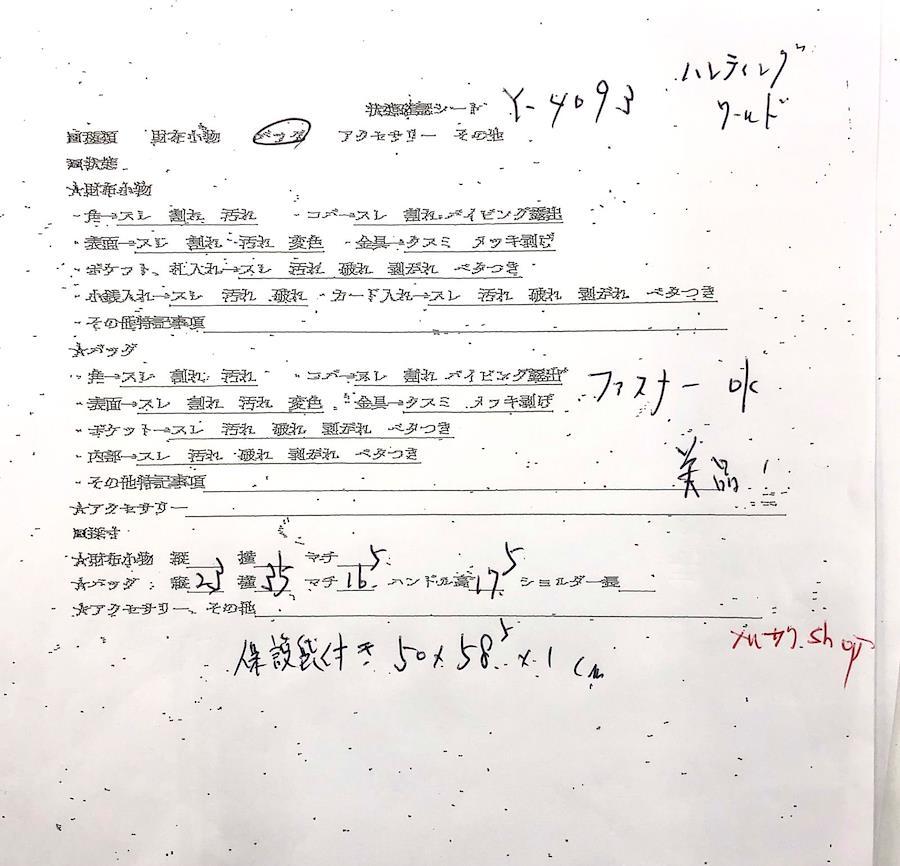 状態確認シート Y-4093 ハンティング
ワールド
■種類 財布小物 バッグ アクセサリー その他
■状態
★財布小物
・角→スレ 割れ 汚れ ・コバ→スレ 割れ パイピング露出
・表面→スレ 割れ 汚れ 変色 ・金具→クスミ メッキ剥げ
・ポケット、札入れ→スレ 汚れ 破れ 剥がれ ベタつき
・小銭入れ→スレ 汚れ 破れ ・カード入れ→スレ 汚れ 破れ 剥がれ ベタつき
・その他特記事項
★バッグ
・角→スレ 割れ 汚れ ・コバ→スレ 割れ パイピング露出 ファスナー ok
・表面→スレ 割れ 汚れ 変色 ・金具→クスミ メッキ剥げ
・ポケット→スレ 汚れ 破れ 剥がれ ベタつき
・内部→スレ 汚れ 破れ 剥がれ ベタつき 美品!
・その他特記事項
★アクセサリー
■採寸
★財布小物 縦 横 マチ
★バッグ 縦 23 横 35 マチ 16.5 ハンドル高 17.5 ショルダー長
★アクセサリー、その他
メルカリ shop
保護袋付き 50×58.5×1cm